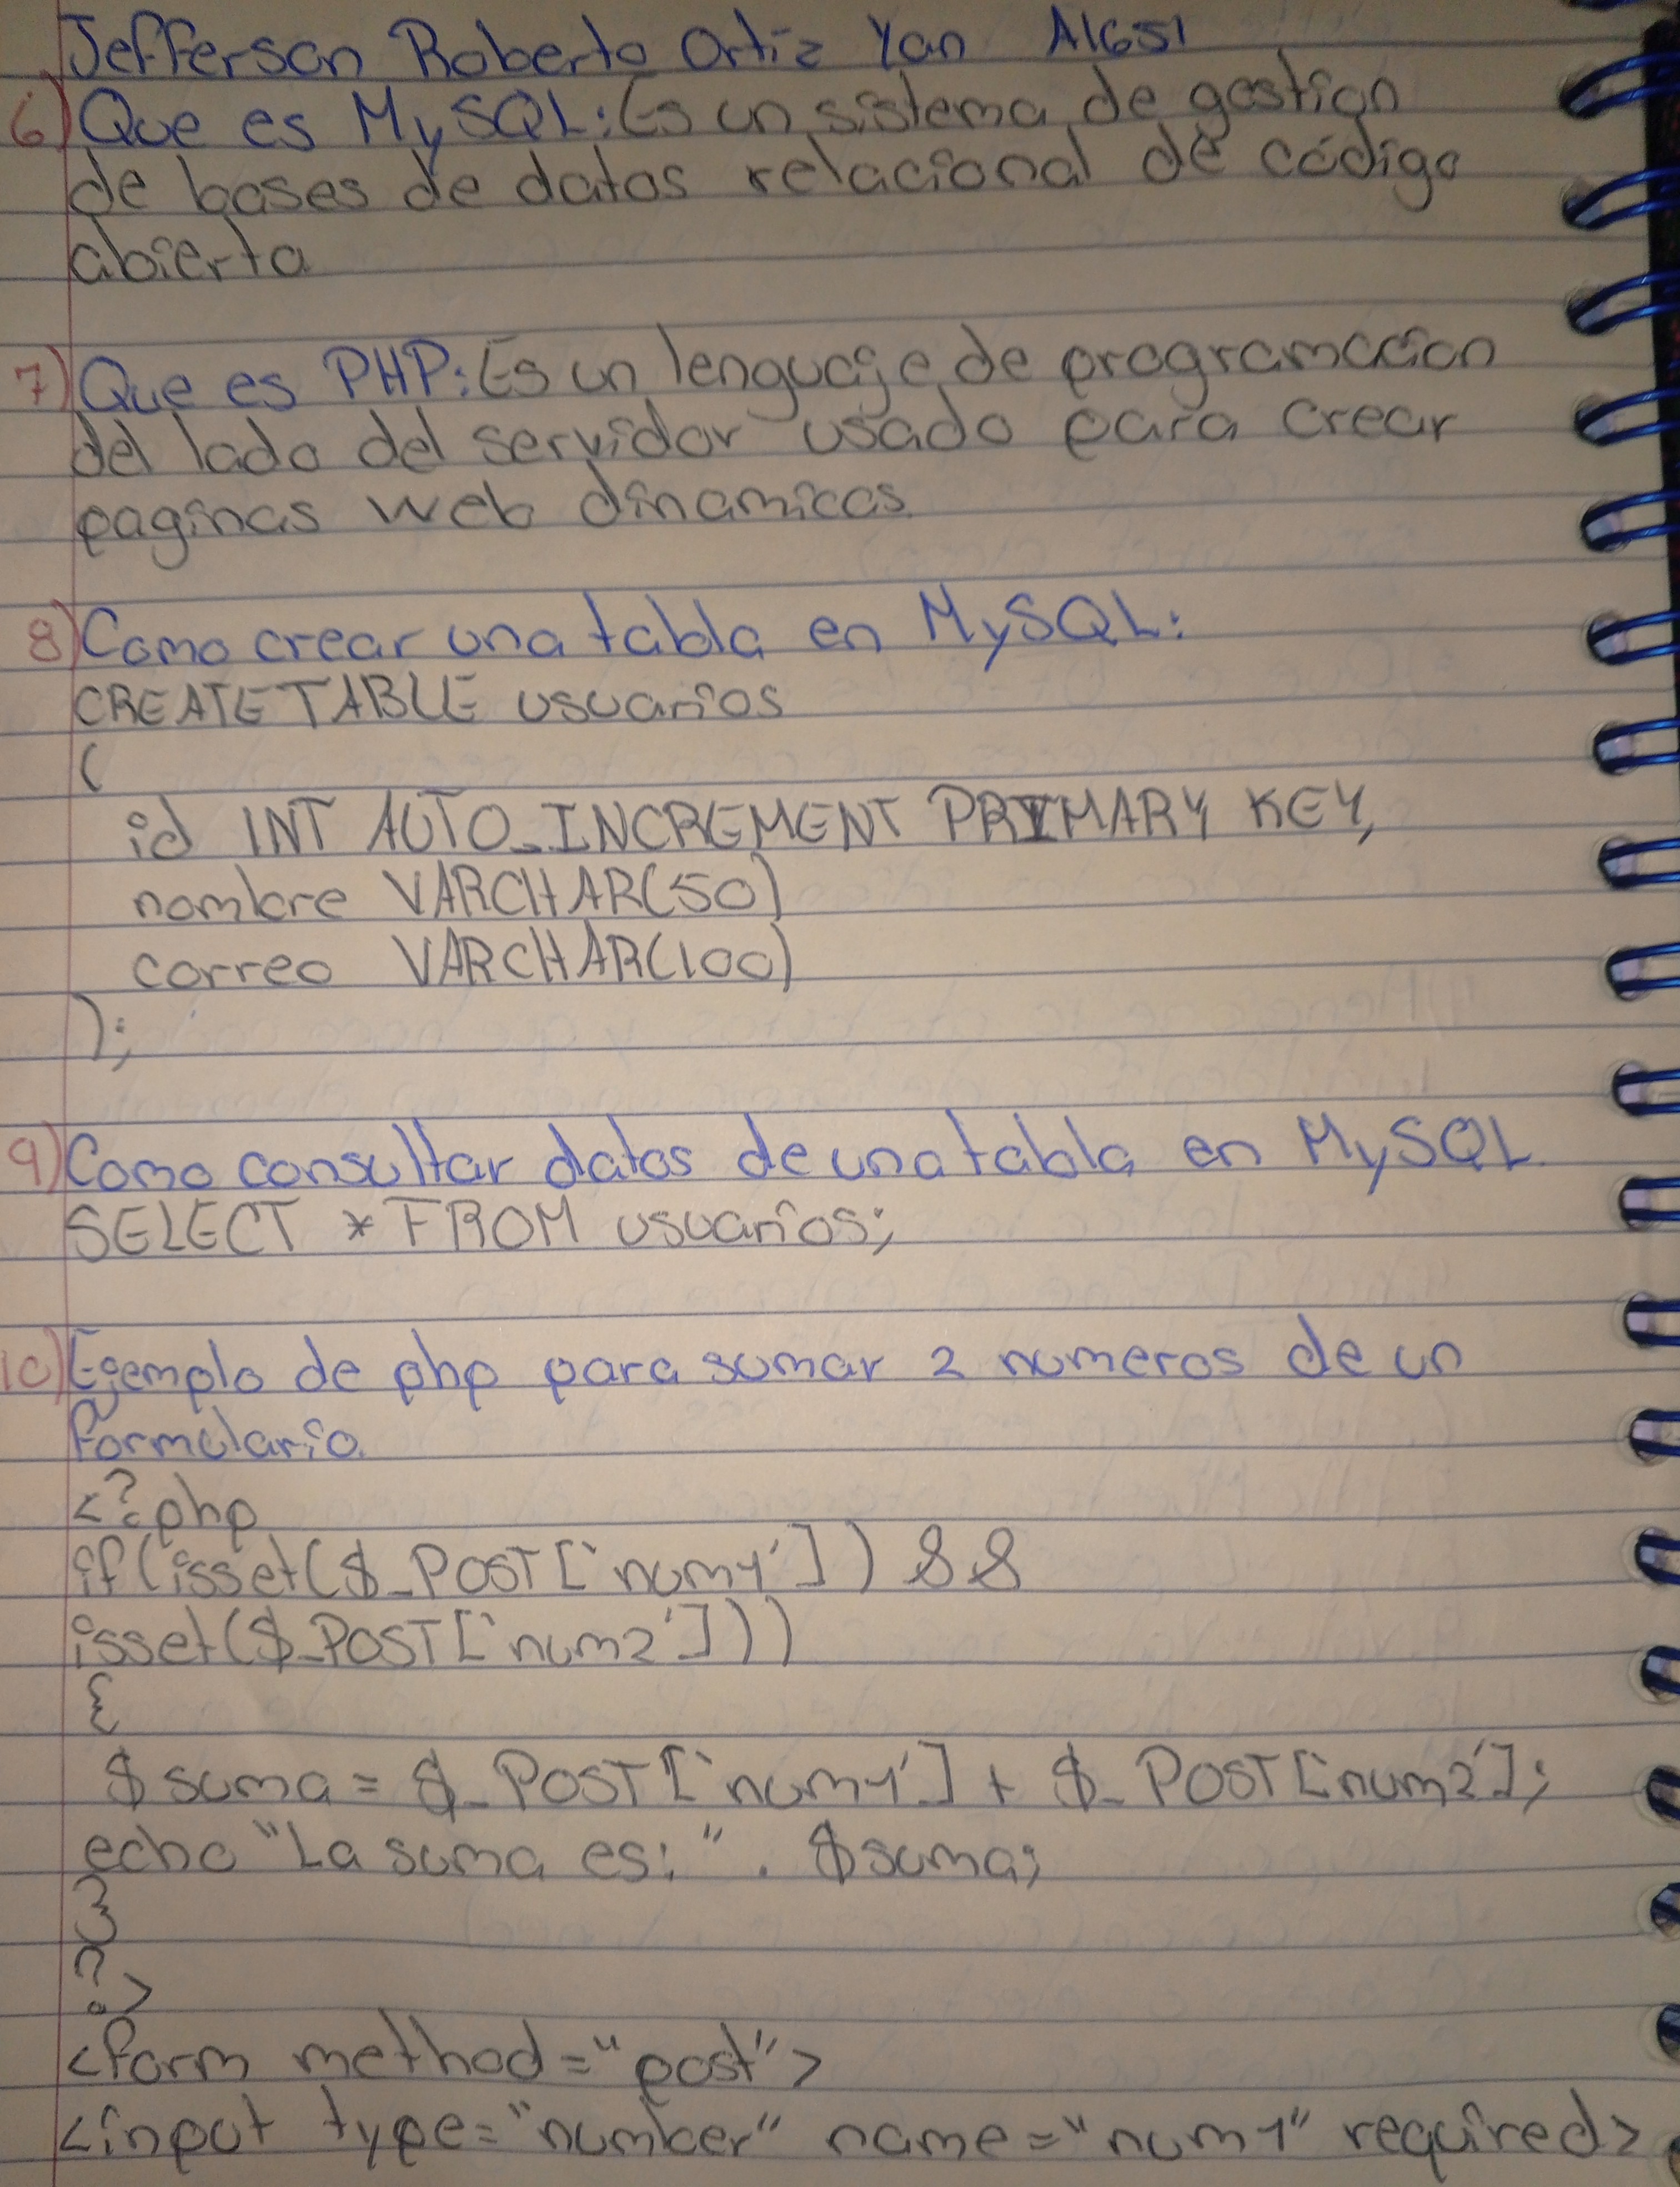 Jefferson Roberto Ortiz Yan A1651
6) Que es MySQL: Es un sistema de gestion
de bases de datos relacional de código
abierta
7) Que es PHP: Es un lenguaje de programacion
del lado del servidor usado para crear
paginas web dinamicas.
8) Como crear una tabla en MySQL:
CREATE TABLE usuarios
(
id INT AUTO_INCREMENT PRIMARY KEY,
nombre VARCHAR(50)
correo VARCHAR(100)
);
9) Como consultar datos de una tabla en MySQL.
SELECT * FROM usuarios;
10) Ejemplo de php para sumar 2 numeros de un
formulario.
<?php
if(isset($_POST['num1']) &&
isset($_POST['num2']))
{
$suma = $_POST['num1'] + $_POST['num2'];
echo "La suma es: " . $suma;
}
?>
<form method="post">
<input type="number" name="num1" required>